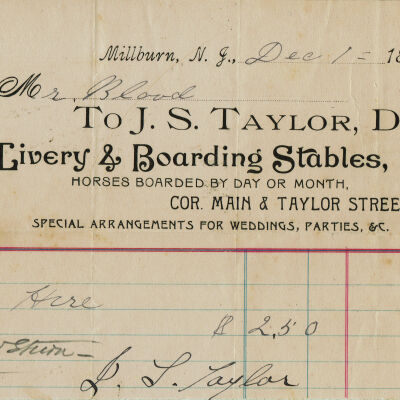 Millburn, N. J., Dec 1 = 18
Mr. Blood
To J. S. Taylor, D
Livery & Boarding Stables,
HORSES BOARDED BY DAY OR MONTH,
COR. MAIN & TAYLOR STREE
SPECIAL ARRANGEMENTS FOR WEDDINGS, PARTIES, &C.
Here
$ 2,50
J. S. Taylor